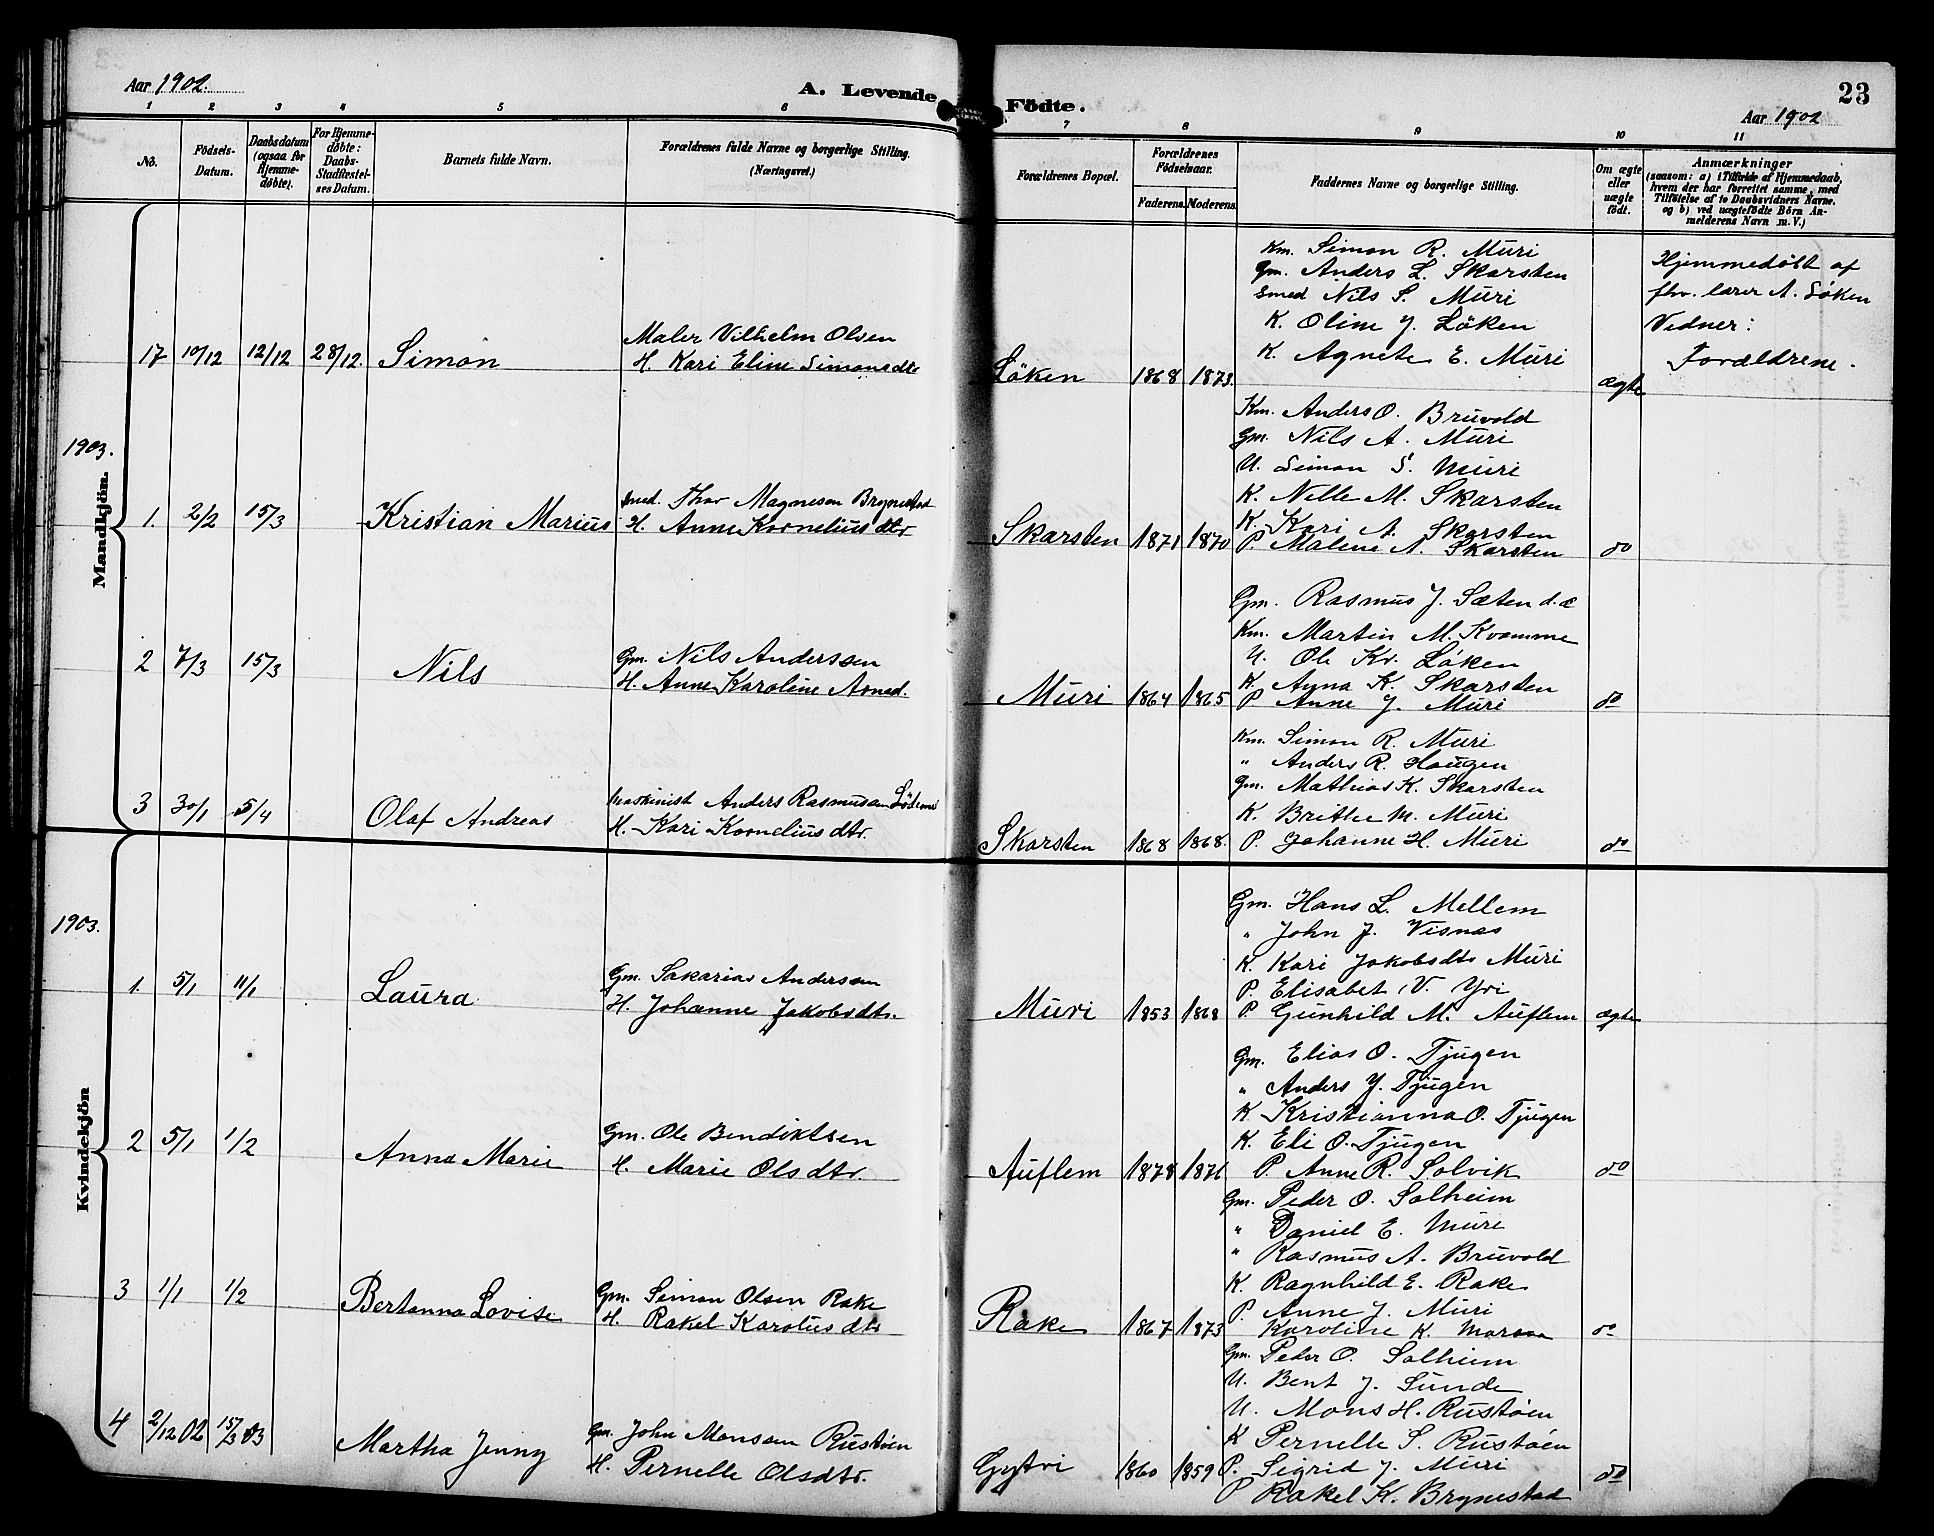 Aar 1902.
A. Levende Födte.
23
Aar 1902
1 2 3 4 5 6 7 8 9 10 11
No.
Födsels-Datum.
Daabsdatum (ogsaa for Hjemmedöbte).
For Hjemmedöbte: Daabs-Stadfæstelses Datum.
Barnets fulde Navn.
Forældrenes fulde Navne og borgerlige Stilling. (Næringsvei.)
Forældrenes Bopæl.
Forældrenes Födselsaar.
Faderens. Moderens.
Faddernes Navne og borgerlige Stilling.
Om ægte eller uægte födt.
Anmærkninger
(saasom: a) i Tilfælde af Hjemmedaab,
hvem der har forrettet samme, med
Tilföielse af to Daabsvidners Navne.
og b) ved uægtefödte Börn Anmelderens Navn m. V.)
17 10/12 12/12 28/12. Simon
Maler Vilhelm Olsen
H. Kari Eline Simonsdtr
Löken 1868 1873.
Km. Simon R. Muri
Gm. Anders L. Skarsten
Smed Nils S. Muri
K. Oline J. Löken
K. Agnete E. Muri
ægte
Hjemmedöbt af
fhv. lærer A. Löken
Vidner:
Forældrene.
1903.
Mandkjön.
1. 2/2 15/3 Kristian Marius
Smed. Thor Magnesen Brynestad
H. Anne Korneliusdtr
Skarsten 1871 1870
Km. Anders O. Bruvold
Gm. Nils A. Muri
U. Simon S. Muri
K. Nille M. Skarsten
K. Kari A. Skarsten
P. Malene A. Skarsten
do
2 7/3 15/3 Nils
Gm. Nils Anderssen
H. Anne Karoline Arned.
Muri 1864 1865
Gm. Rasmus J. Sæten d.æ
Km. Martin M. Kvamme
U. Ole Kr. Löken
K. Agna K. Skarsten
P Anne J. Muri
do
3 30/1 5/4 Olaf Andreas
Maskinist Anders Rasmussen Lödemel
H. Kari Korneliusdtr.
Skarsten 1868 1868.
Km. Simon R. Muri
" Anders R. Haugen
Gm. Mathias K. Skarsten
K. Brithe M. Muri
P. Johanne H. Muri
do
1903.
Kvindekjön
1. 5/1 11/1 Laura
Gm. Sakarias Anderssen
H. Johanne Jakobsdtr.
Muri 1853 1868
Gm. Hans L. Mellem
" John J. Visnæs
K. Kari Jakobsdtr Muri
P. Elisabet V. Yri
P Gunhild M. Auflem
ægte
2 5/1 1/2 Anna Marie
Gm. Ole Bendiktsen
H. Marie Olsdtr.
Auflem 1878 1876
Gm. Elias O. Tjugen
" Anders J. Tjugen
K Kristianna O. Tjugen
K. Eli O. Tjugen
P. Anne R. Solvik
do
3 1/1 1/2 Bertanna Lovise
Gm. Simon Olsen Rake
H. Rakel Karolusdtr
Rake 1867 1873
Gm. Peder O. Solheim
" Daniel E. Muri
" Rasmus A. Bruvold
K Ragnhild E. Rake
P. Anne J. Muri
Karoline K.
do
4 2/12 02 15/3 03 Martha Jenny
Gm. John Monssen Rustöen
H. Pernelle Olsdtr.
Gytri 1860 1859
Gm. Peder O. Solheim
U. Bent J. Sunde
U. Mons H. Rustöen
K Pernelle S. Rustöen
P. Sigrid J. Muri
P Rakel K. Brynestad
do